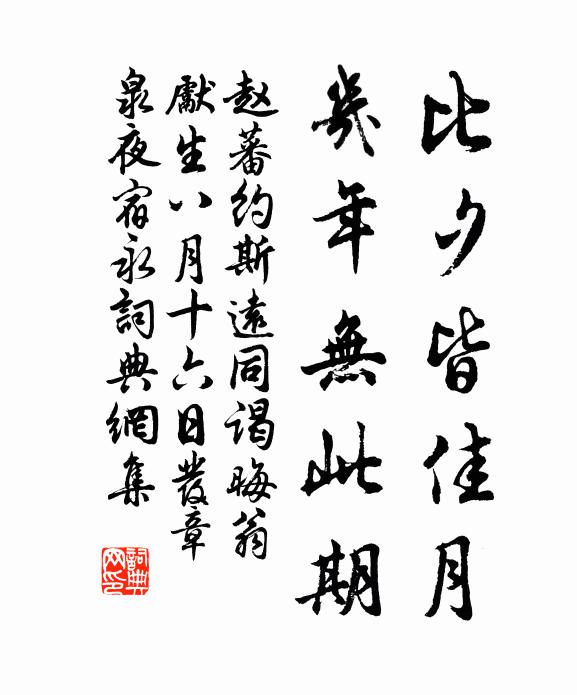 比夕皆佳月
幾年無此期
赵蕃約斯遠同謁晦翁
獻生八月十六日發章
泉夜宿永詞典網集
詞典
网印